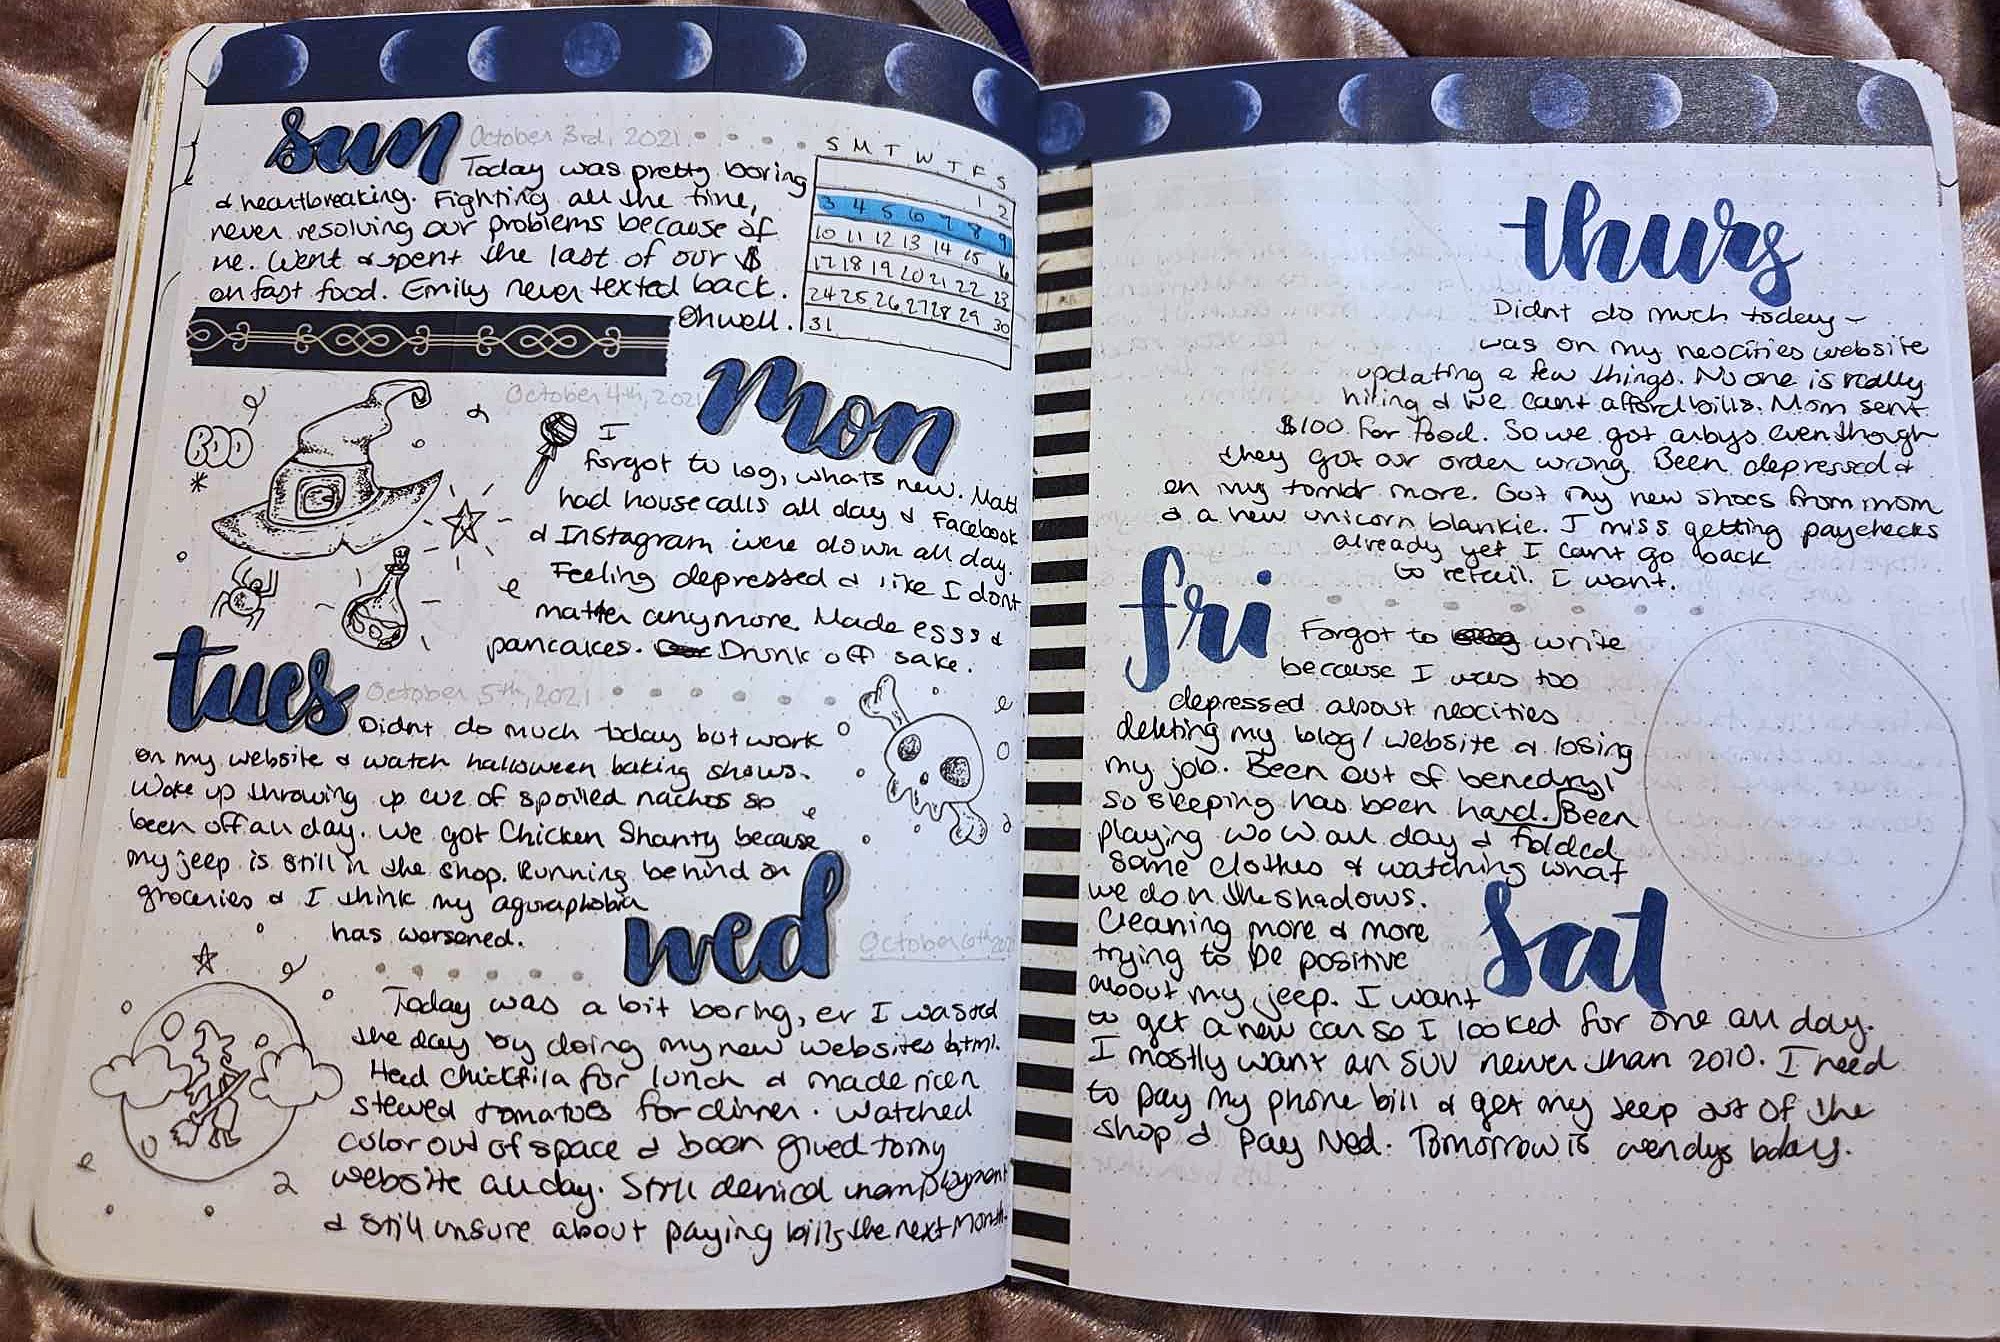 sun October 3rd, 2021
Today was pretty boring
& heartbreaking. Fighting all the time,
never resolving our problems because of
me. Went & spent the last of our $
on fast food. Emily never texted back.
Oh well.
S M T W T F S
1 2
3 4 5 6 7 8 9
10 11 12 13 14 15 16
17 18 19 20 21 22 23
24 25 26 27 28 29 30
31
mon October 4th, 2021
BOO
I
forgot to log, whats new. Matt
had housecalls all day & Facebook
& Instagram were down all day.
Feeling depressed & like I dont
matter anymore. Made eggs &
pancakes. Drunk off sake.
tues October 5th, 2021
Didnt do much today but work
on my website & watch halloween baking shows.
Woke up throwing up cuz of spoiled nachos so
been off all day. We got Chicken Shanty because
my jeep is still in the shop. Running behind on
groceries & I think my aguraphobia
has worsened.
wed October 6th 2021
Today was a bit boring, er I wasted
the day by doing my new websites html.
Had chickfila for lunch & made rice n
stewed tomatoes for dinner. Watched
color out of space & been glued to my
website all day. Still denied unemployment
& still unsure about paying bills the next month.
thurs
Didnt do much today -
was on my neocities website
updating a few things. No one is really
hiring & we cant afford bills. Mom sent
$100 for food. So we got arbys even though
they got our order wrong. Been depressed &
on my tumblr more. Got my new shoes from mom
& a new unicorn blankie. I miss getting paychecks
already yet I cant go back
to retail. I wont.
fri
Forgot to write
because I was too
depressed about neocities
deleting my blog/website & losing
my job. Been out of benedryl
so sleeping has been hard. Been
playing WoW all day & folded
some clothes & watching what
we do in the shadows.
sat
Cleaning more & more
trying to be positive
about my jeep. I want
to get a new car so I looked for one all day.
I mostly want an SUV newer than 2010. I need
to pay my phone bill & get my jeep out of the
shop & pay Ned. Tomorrow is wendys bday.